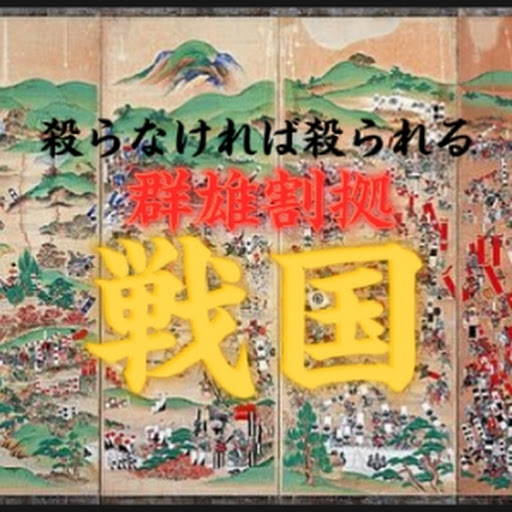 殺らなければ殺られる
群雄割拠
戦国